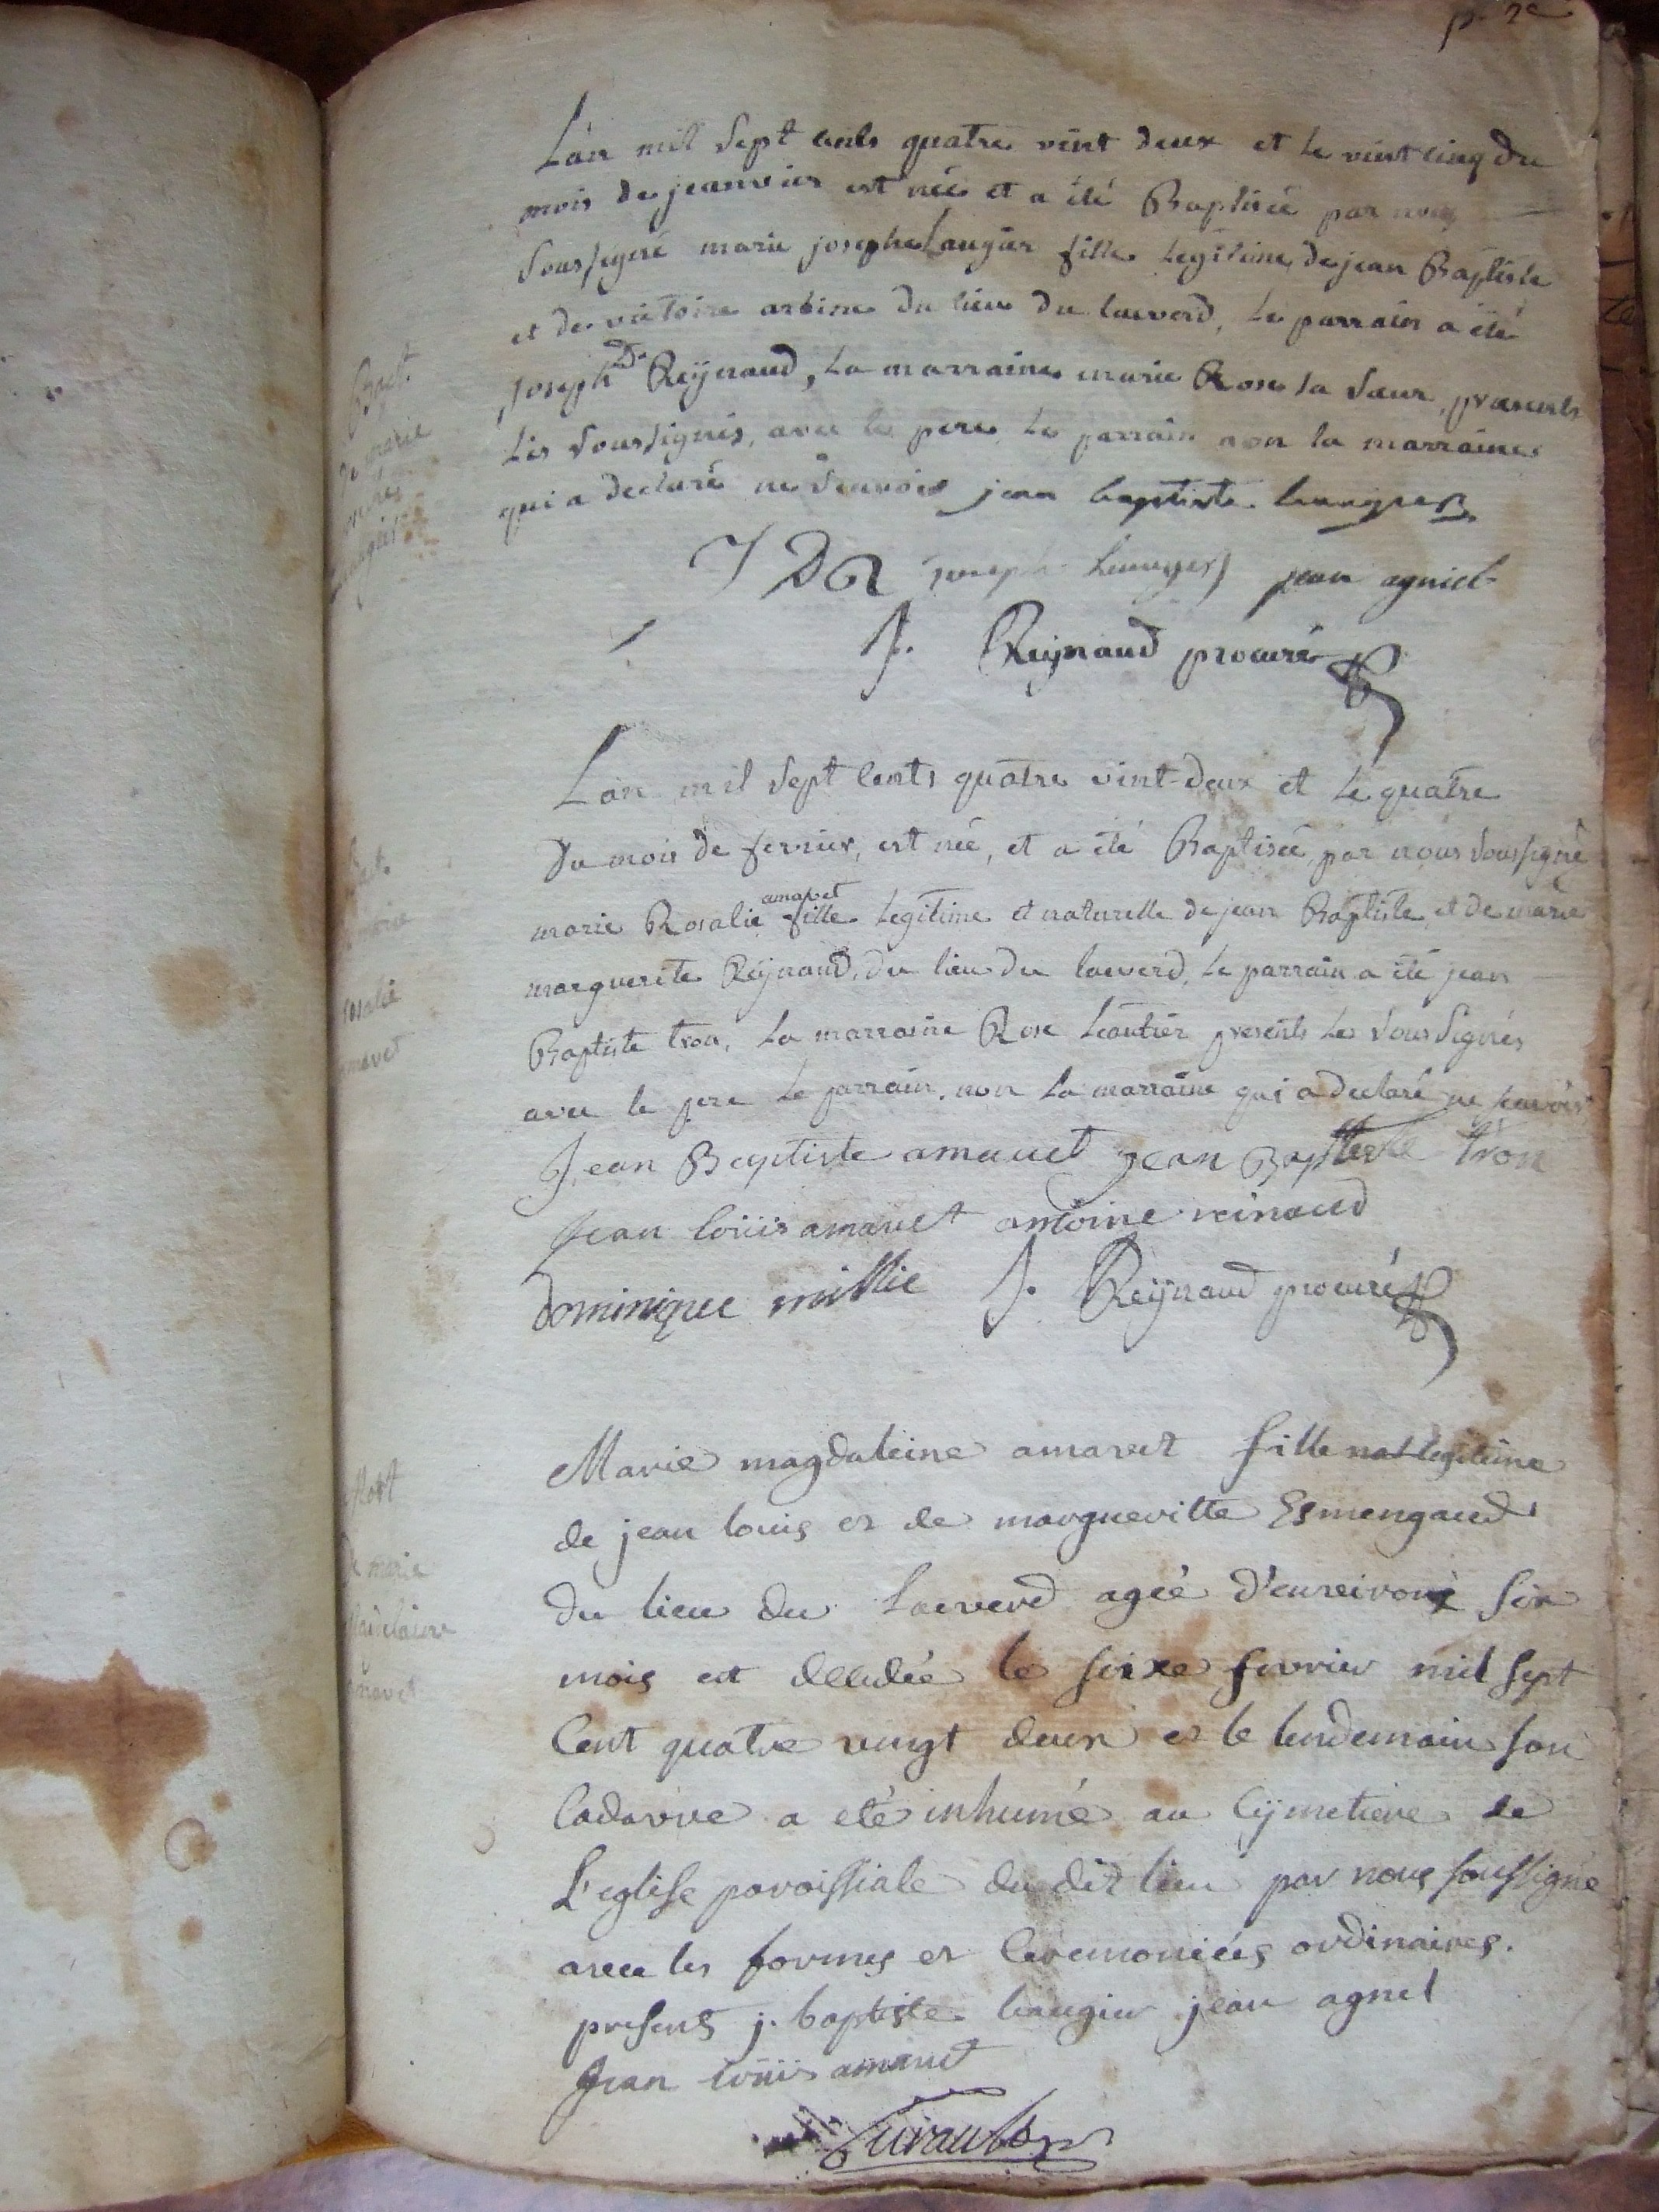 L'an mil sept cents quatre vint deux et le vint cinq du
mois de jeanvier est née et a été Baptisée par nous
soussigné marie josephe Laugier fille legitime de jean Baptiste
et de victoire du lieu du lauverd, le parrain a été
joseph Reÿnaud, la marraine marie Rose sa sœur, presents
les soussignés, avec le pere le parrain non la marraine
qui a declaré ne scavoir jean baptiste laugier
J D R joseph laugier jean agniel
J. Reÿnaud procuré
Bapt.
de marie
L'an mil sept cents quatre vint-deux et le quatre
du mois de fevrier, est née, et a été Baptisée, par nous soussigné
amavet
marie Rosalie fille legitime et naturelle de jean Baptiste, et de marie
marguerite Reÿnaud, du lieu du lauverd, le parrain a été jean
Baptiste tron, la marraine Rose Leautier presents les soussignés
avec le pere le parrain, non la marraine qui a declaré ne scavoir
Jean Baptiste amavet jean Baptiste tron
jean loüis amavet antoine reinaud
dominique millie J. Reÿnaud procuré
marie
rosalie
Marie magdaleine amavet fille nat legitime
de jean louis et de margueritte Esmengaud
du lieu du Lauverd agée d'environ six
mois est decedée le seixe fevrier mil sept
Cent quatre vingt deux et le lendemain son
Cadavre a eté inhumé au Cÿmetiere de
L'eglise paroissiale du dit lieu par nous soussigné
avec les formes et Ceremonieés ordinaires.
presens j. baptiste laugier jean agnel
jean loüis amavet
Mort
de marie